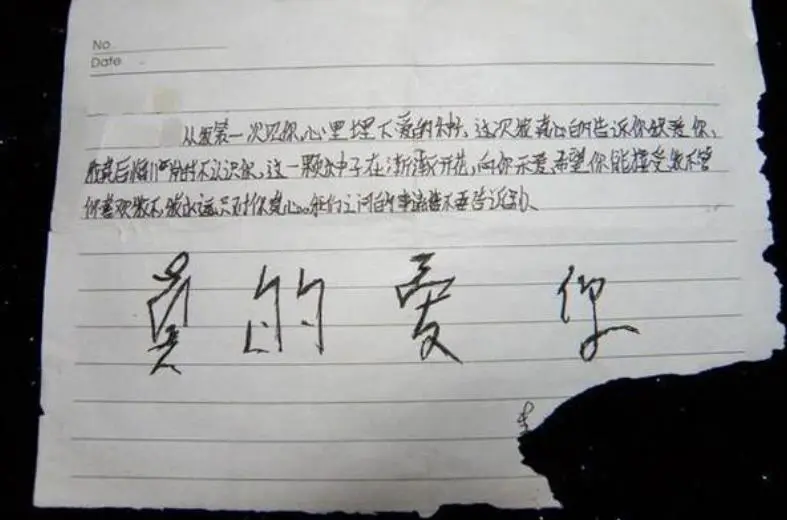 No
Date
从我第一次见你,心里埋下爱的种,这次我真心的告诉你我爱你,
我 后 不认识你,这一颗种子在渐渐开花,向你示爱,希望你能接受我不管
你喜欢我不,我永远只对你真心。 们之间的事请 不要告诉别
真的爱你